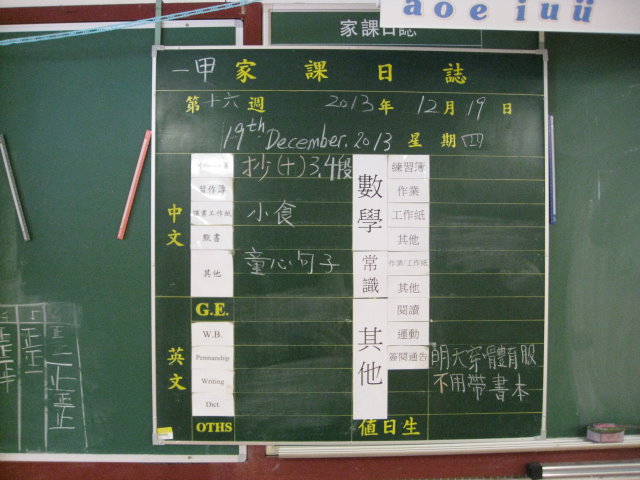 a o e i u ü
家課日誌
一甲 家課日誌
第十六週 2013年 12月19日
19th December, 2013 星期四
中文
抄(十)3,4段
習作簿
作業工作紙 小食
默書
其他 童心句子
英文
G.E.
W.B.
Penmanship
Writing
Dict.
OTHS
數學
練習簿
作業
工作紙
其他
常識
作業/工作紙
其他
其他
閱讀
運動
簽閱通告 明天穿體育服
不用帶書本
值日生
正
正
正
正
正
正